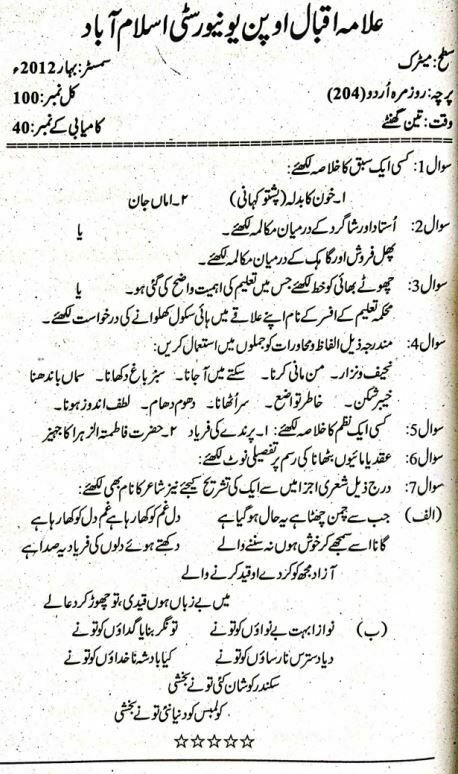 علامہ اقبال اوپن یونیورسٹی اسلام آباد
سطح: میٹرک سمسٹر: بہار 2012ء
پرچہ: روزمرہ اُردو (204) کل نمبر: 100
وقت: تین گھنٹے کامیابی کے نمبر: 40
سوال 1: کسی ایک سبق کا خلاصہ لکھئے:
۱۔ خون کا بدلہ (پشتو کہانی) ۲۔ اماں جان
سوال 2: اُستاد اور شاگرد کے درمیان مکالمہ لکھئے۔ یا
پھل فروش اور گاہک کے درمیان مکالمہ لکھئے۔
سوال 3: چھوٹے بھائی کو خط لکھئے جس میں تعلیم کی اہمیت واضح کی گئی ہو۔ یا
محکمہ تعلیم کے افسر کے نام اپنے علاقے میں ہائی سکول کھلوانے کی درخواست لکھئے۔
سوال 4: مندرجہ ذیل الفاظ و محاورات کو جملوں میں استعمال کریں:
نحیف و نزار۔ من مانی کرنا۔ سکتے میں آ جانا۔ سبز باغ دکھانا۔ سماں باندھنا
خیبر شکن۔ خاطر تواضع۔ سر اُٹھانا۔ دھوم دھام۔ لطف اندوز ہونا۔
سوال 5: کسی ایک نظم کا خلاصہ لکھئے: ۱۔ پرندے کی فریاد ۲۔ حضرت فاطمتہ الزہرا کا جہیز
سوال 6: عقد یا مائیوں بٹھانا کی رسم پر تفصیلی نوٹ لکھئے:
سوال 7: درج ذیل شعری اجزا میں سے ایک کی تشریح کیجئے نیز شاعر کا نام بھی لکھئے:
(الف) جب سے چمن چھٹا ہے یہ حال ہو گیا ہے دل غم کو کھا رہا ہے غم دل کو کھا رہا ہے
گانا اسے سمجھ کر خوش ہوں نہ سننے والے دکھتے ہوئے دلوں کی فریاد یہ صدا ہے
آزاد مجھ کو کر دے او قید کرنے والے
میں بے زباں ہوں قیدی، تو چھوڑ کر دعا لے
(ب) نوازا بہت بے نواؤں کو تو نے تونگر بنایا گداؤں کو تو نے
دیا دسترس نارساؤں کو تو نے کیا بادشہ ناخداؤں کو تو نے
سکندر کو شان کئی تو نے بخشی
کولمبس کو دنیا نئی تو نے بخشی